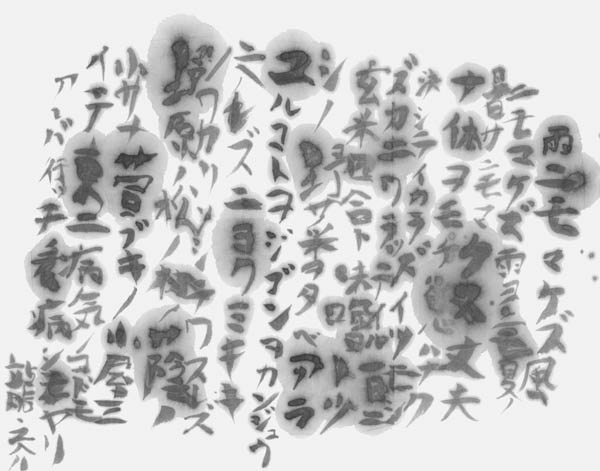 雨ニモマケズ風
ニモマケズ雨ニモ夏ノ
暑サニモマケヌ丈夫
ナ体ヲモチ慾ハナク
決シテイカラズイツモ
シズカニワラッテイル一日ニ
玄米四合ト味噌ト少
シノ野菜ヲタベアラ
ユルコトヲジブンヲカンジョウ
ニ入レズニヨクミキキ
シワカリソシテワスレズ
野原ノ松ノ林ノ蔭ノ
小サナ萱ブキノ小屋ニ
イテ東ニ病気ノコドモ
アレバ行ッテ看病シテヤリ